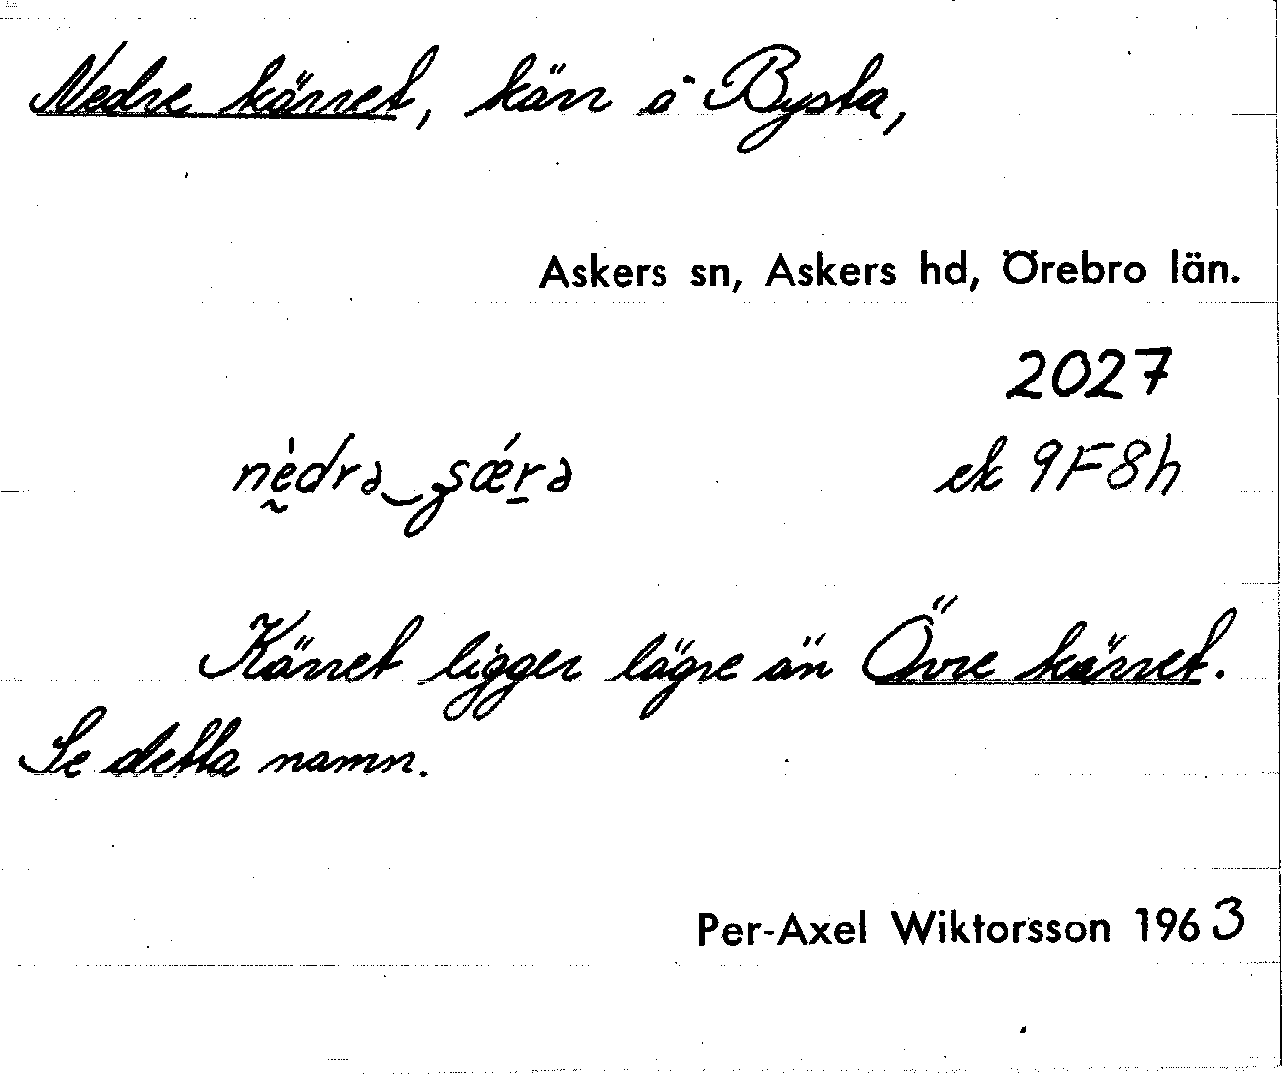 Nedre kärret, kärr å Bysta,
Askers sn, Askers hd, Örebro län.
2027
ek 9F8h
Kärret ligger lägre än Övre kärret.
Se detta namn.
Per-Axel Wiktorsson 1963